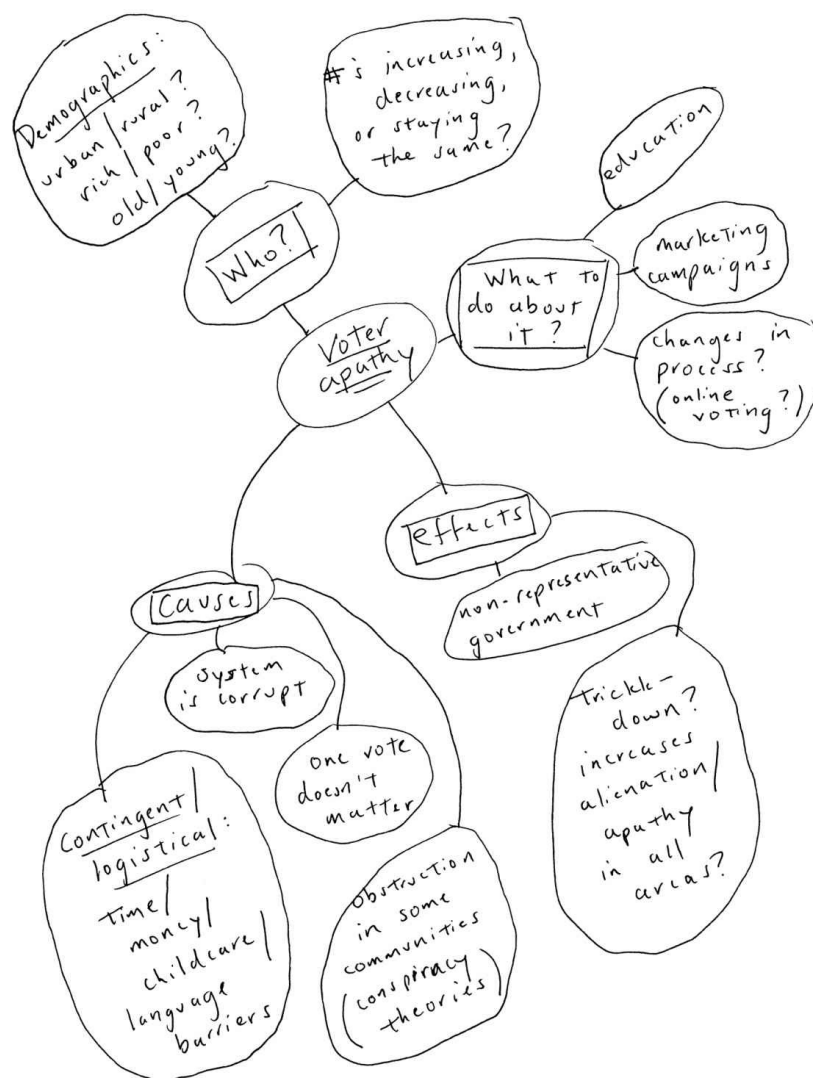 Demographics:
urban/rural?
rich/poor?
old/young?
#'s increasing,
decreasing,
or staying
the same?
Who?
education
marketing
campaigns
What to
do about
it?
changes in
process?
(online
voting?)
Voter
apathy
effects
non-representative
government
trickle-
down?
increases
alienation/
apathy
in all
areas?
causes
system
is corrupt
one vote
doesn't
matter
contingent/
logistical:
time/
money/
childcare/
language
barriers
obstruction
in some
communities
(conspiracy
theories)